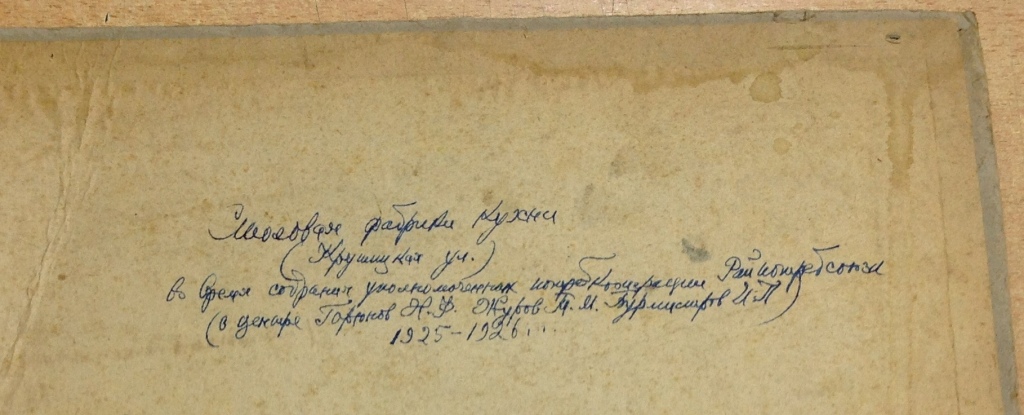 Столовая фабрики кухни
( Крутицкая ул.)
во время собрания уполномоченных потребкооперации Райпотребсоюза
(в центре Горюнов Н.Ф. Журов М.М. Бурмистров И.П)
1925-1926...